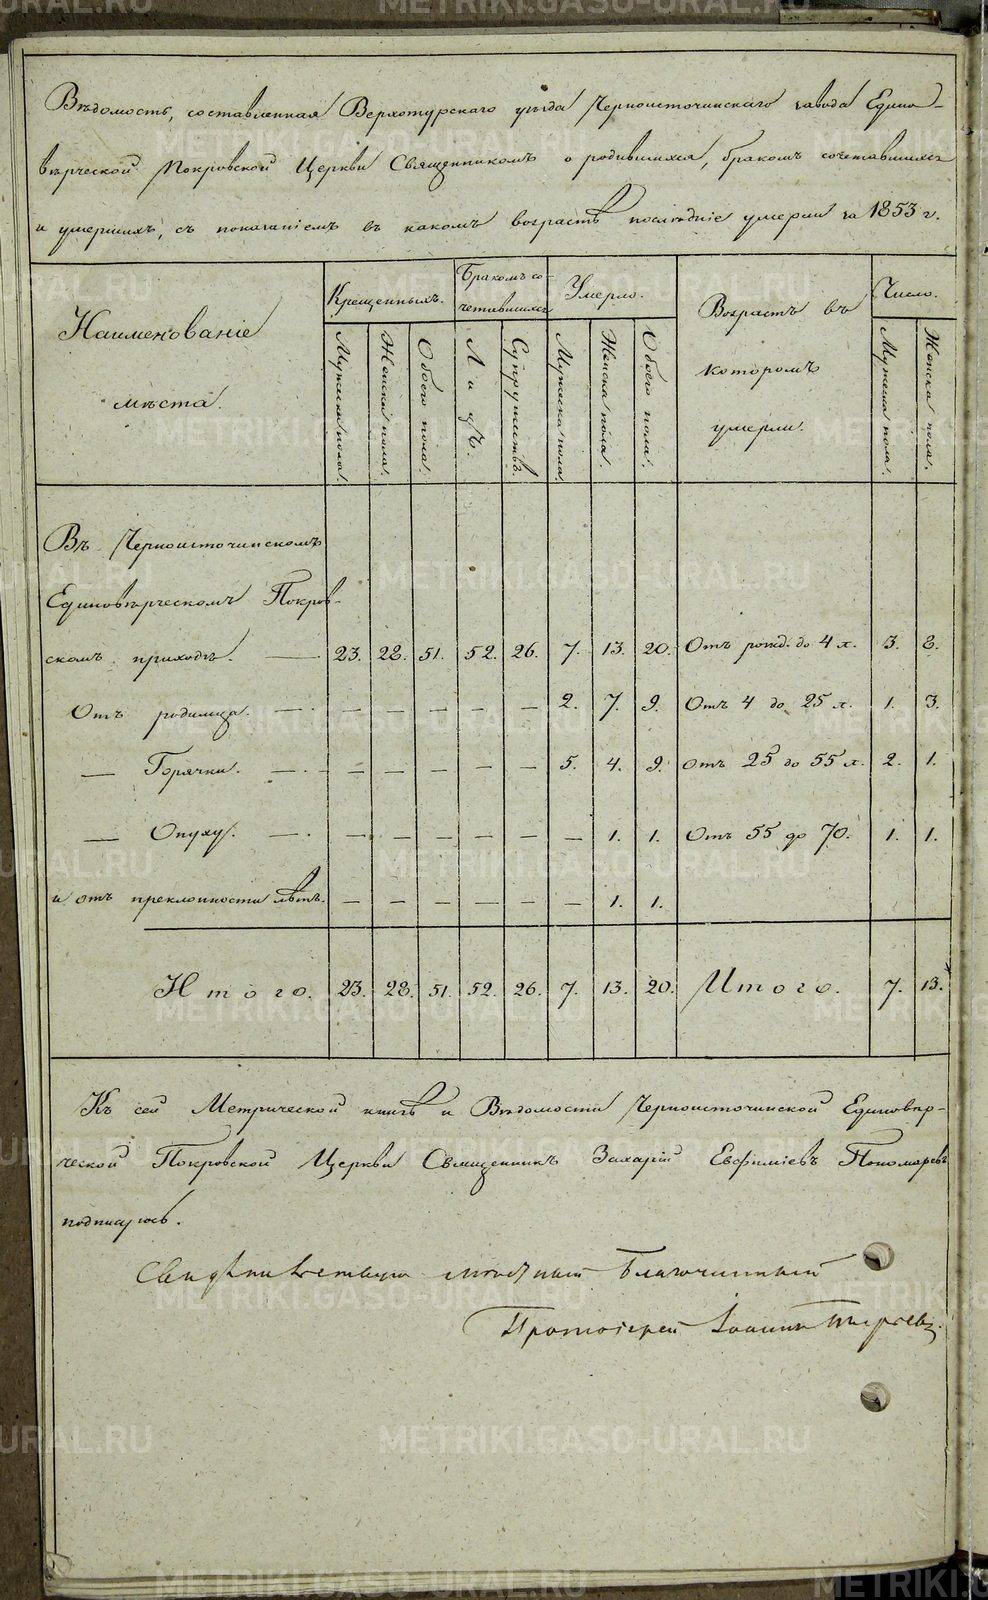 Вѣдомость, составленная Верхотурскаго уѣзда Черноисточинскаго завода Едино-
вѣрческой Покровской Церкви Священникомъ о родившихся, бракомъ сочетавшихся
и умершихъ, съ показаніемъ въ какомъ возрастѣ послѣдніе умерли за 1853 г.
Наименованіе
мѣста.
Крещенныхъ.
Бракомъ со-
четавшихся
Умерло.
Возрастъ въ
которомъ
умерли.
Число.
Мужеска пола.
Женска пола.
Обоего пола.
Лицъ.
Супружествъ.
Мужеска пола.
Женска пола.
Обоего пола.
Мужеска пола.
Женска пола.
Въ Черноисточинскомъ
Единовѣрческомъ Покров-
скомъ приходѣ. — 23. 28. 51. 52. 26. 7. 13. 20. Отъ рожд. до 4 л. 3. 8.
Отъ родимца. — — — — — — 2. 7. 9. Отъ 4 до 25 л. 1. 3.
— Горячки. — — — — — — 5. 4. 9. Отъ 25 до 55 л. 2. 1.
— Опуху. — — — — — — — 1. 1. Отъ 55 до 70. 1. 1.
и отъ преклонности лѣтъ. — — — — — — 1. 1.
Итого. 23. 28. 51. 52. 26. 7. 13. 20. Итого. 7. 13.
Къ сей Метрической книгѣ и Вѣдомости Черноисточинской Единовѣр-
ческой Покровской Церкви Священникъ Захарій Евфиміевъ Пономаревъ
подписуюсь.
Свидѣтельствую Благочинный
Протоіерей Іоаннъ
METRIKI.GASO-URAL.RU